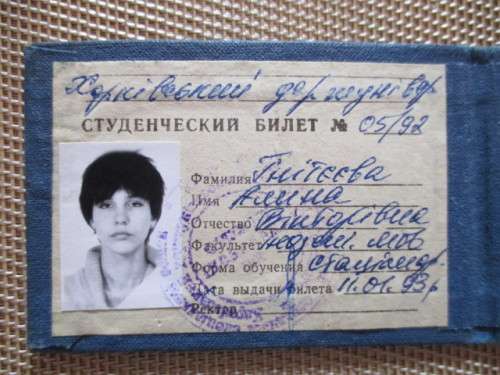 Харківський держунівер
СТУДЕНЧЕСКИЙ БИЛЕТ № 05/92
Фамилия Гнітєєва
Имя Алина
Отчество Вікторівна
Факультет іноземн. мов
Форма обучения стаціонар.
Дата выдачи билета 11.01.93р
Ректор